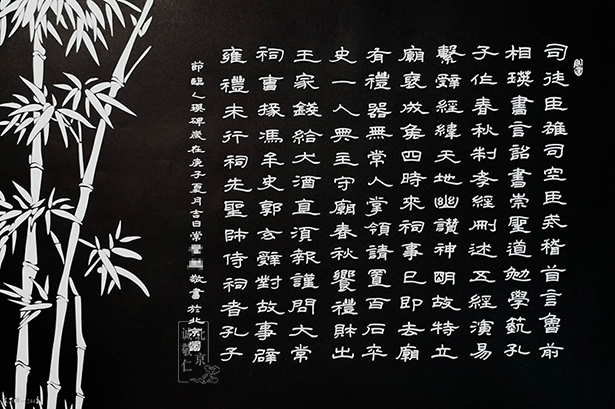 司徒臣雄司空臣戒稽首言魯前
相瑛書言詔書崇聖道勉學藝孔
子作春秋制孝經刪述五經演易
繫辭經緯天地幽讚神明故特立
廟褒成侯四時來祠事已即去廟
有禮器無常人掌領請置百石卒
史一人典主守廟春秋饗禮財出
王家錢給大酒直須報謹問大常
祠曹掾馮牟史郭玄辭對故事辟
雍禮未行祠先聖師侍祠者孔子
節臨乙瑛碑歲在庚子夏月吉日常敬書於北京
北京
诚敬仁